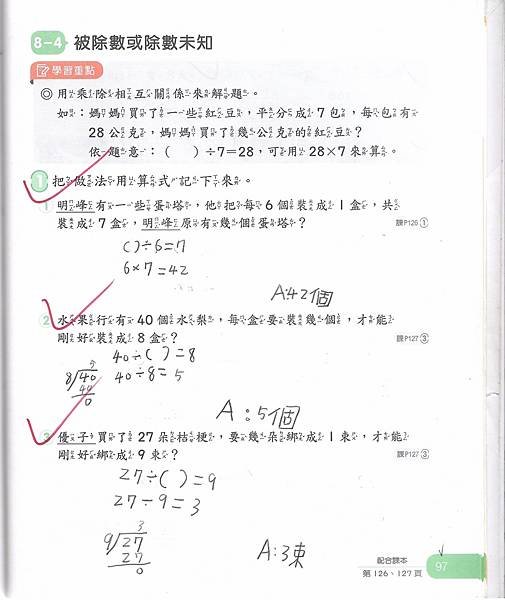 8-4 被除數或除數未知
學習重點
◎用乘除相互關係來解題。
如：媽媽買了一些紅豆，平分成7包，每包有
28公克，媽媽買了幾公克的紅豆？
依題意：（ ）÷7=28，可用28×7來算。
1 把做法用算式記下來。
1 明峰有一些蛋塔，他把每6個裝成1盒，共
裝成7盒，明峰原有幾個蛋塔？ 課P126①
( )÷6=7
6×7=42
A:42個
2 水果行有40個水梨，每盒要裝幾個，才能
剛好裝成8盒？ 課P127③
40÷( )=8
40÷8=5
5
8 40
40
0
A:5個
3 優子買了27朵桔梗，要幾朵綁成1束，才能
剛好綁成9束？ 課P127③
27÷( )=9
27÷9=3
3
9 27
27
0
A:3束
配合課本
第126、127頁
97